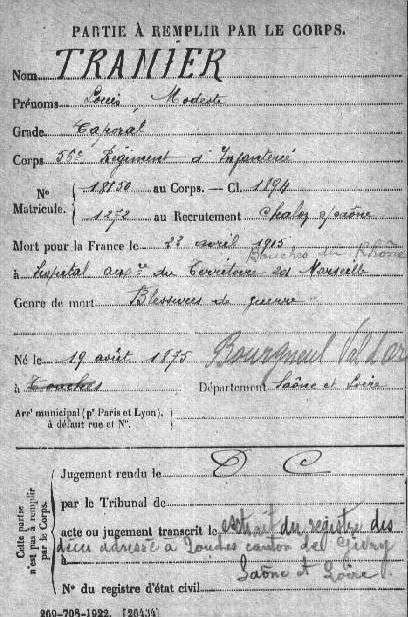 PARTIE À REMPLIR PAR LE CORPS.
Nom TRAMIER
Prénoms Louis, Modeste
Grade Caporal
Corps 56e Régiment d'Infanterie
N° Matricule. { 18850 au Corps. — Cl. 1894
1272 au Recrutement Chalon s/Saône
Mort pour la France le 22 avril 1915
Bouches du Rhône
à Hôpital aux.re du Territoire de Marseille
Genre de mort Blessures de guerre
Né le 19 août 1875 Bourgneuf Val d'or
à Touches Département Saône et Loire
Arr' municipal (p' Paris et Lyon), à défaut rue et N°.
Cette partie n'est pas à remplir par le Corps.
Jugement rendu le D C
par le Tribunal de
acte ou jugement transcrit le extrait du registre des
décès adressé à canton de Givry
à Saône et Loire
N° du registre d'état civil
269-708-1922. [26434]